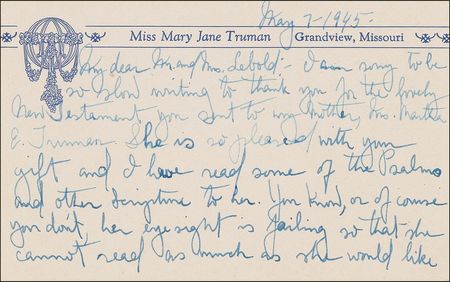 May 7-1945.
Miss Mary Jane Truman Grandview, Missouri
My dear Mr and Mrs. Lebold:- I am sorry to be
so slow writing to thank you for the lovely
New Testament you sent to my Mother, Mrs. Martha
E. Truman. She is so pleased with your
gift and I have read some of the Psalms
and other Scripture to her. You know, or of course
you don't, her eye sight is failing so that she
cannot read as much as she would like